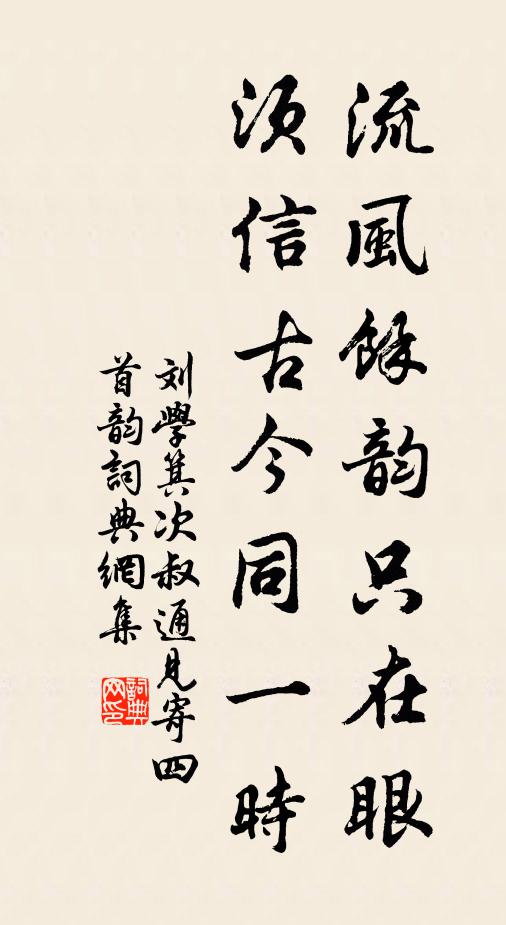 流風餘韵只在眼
須信古今同一時
刘學箕次叔通見寄四
首韵詞典網集
詞典
网印